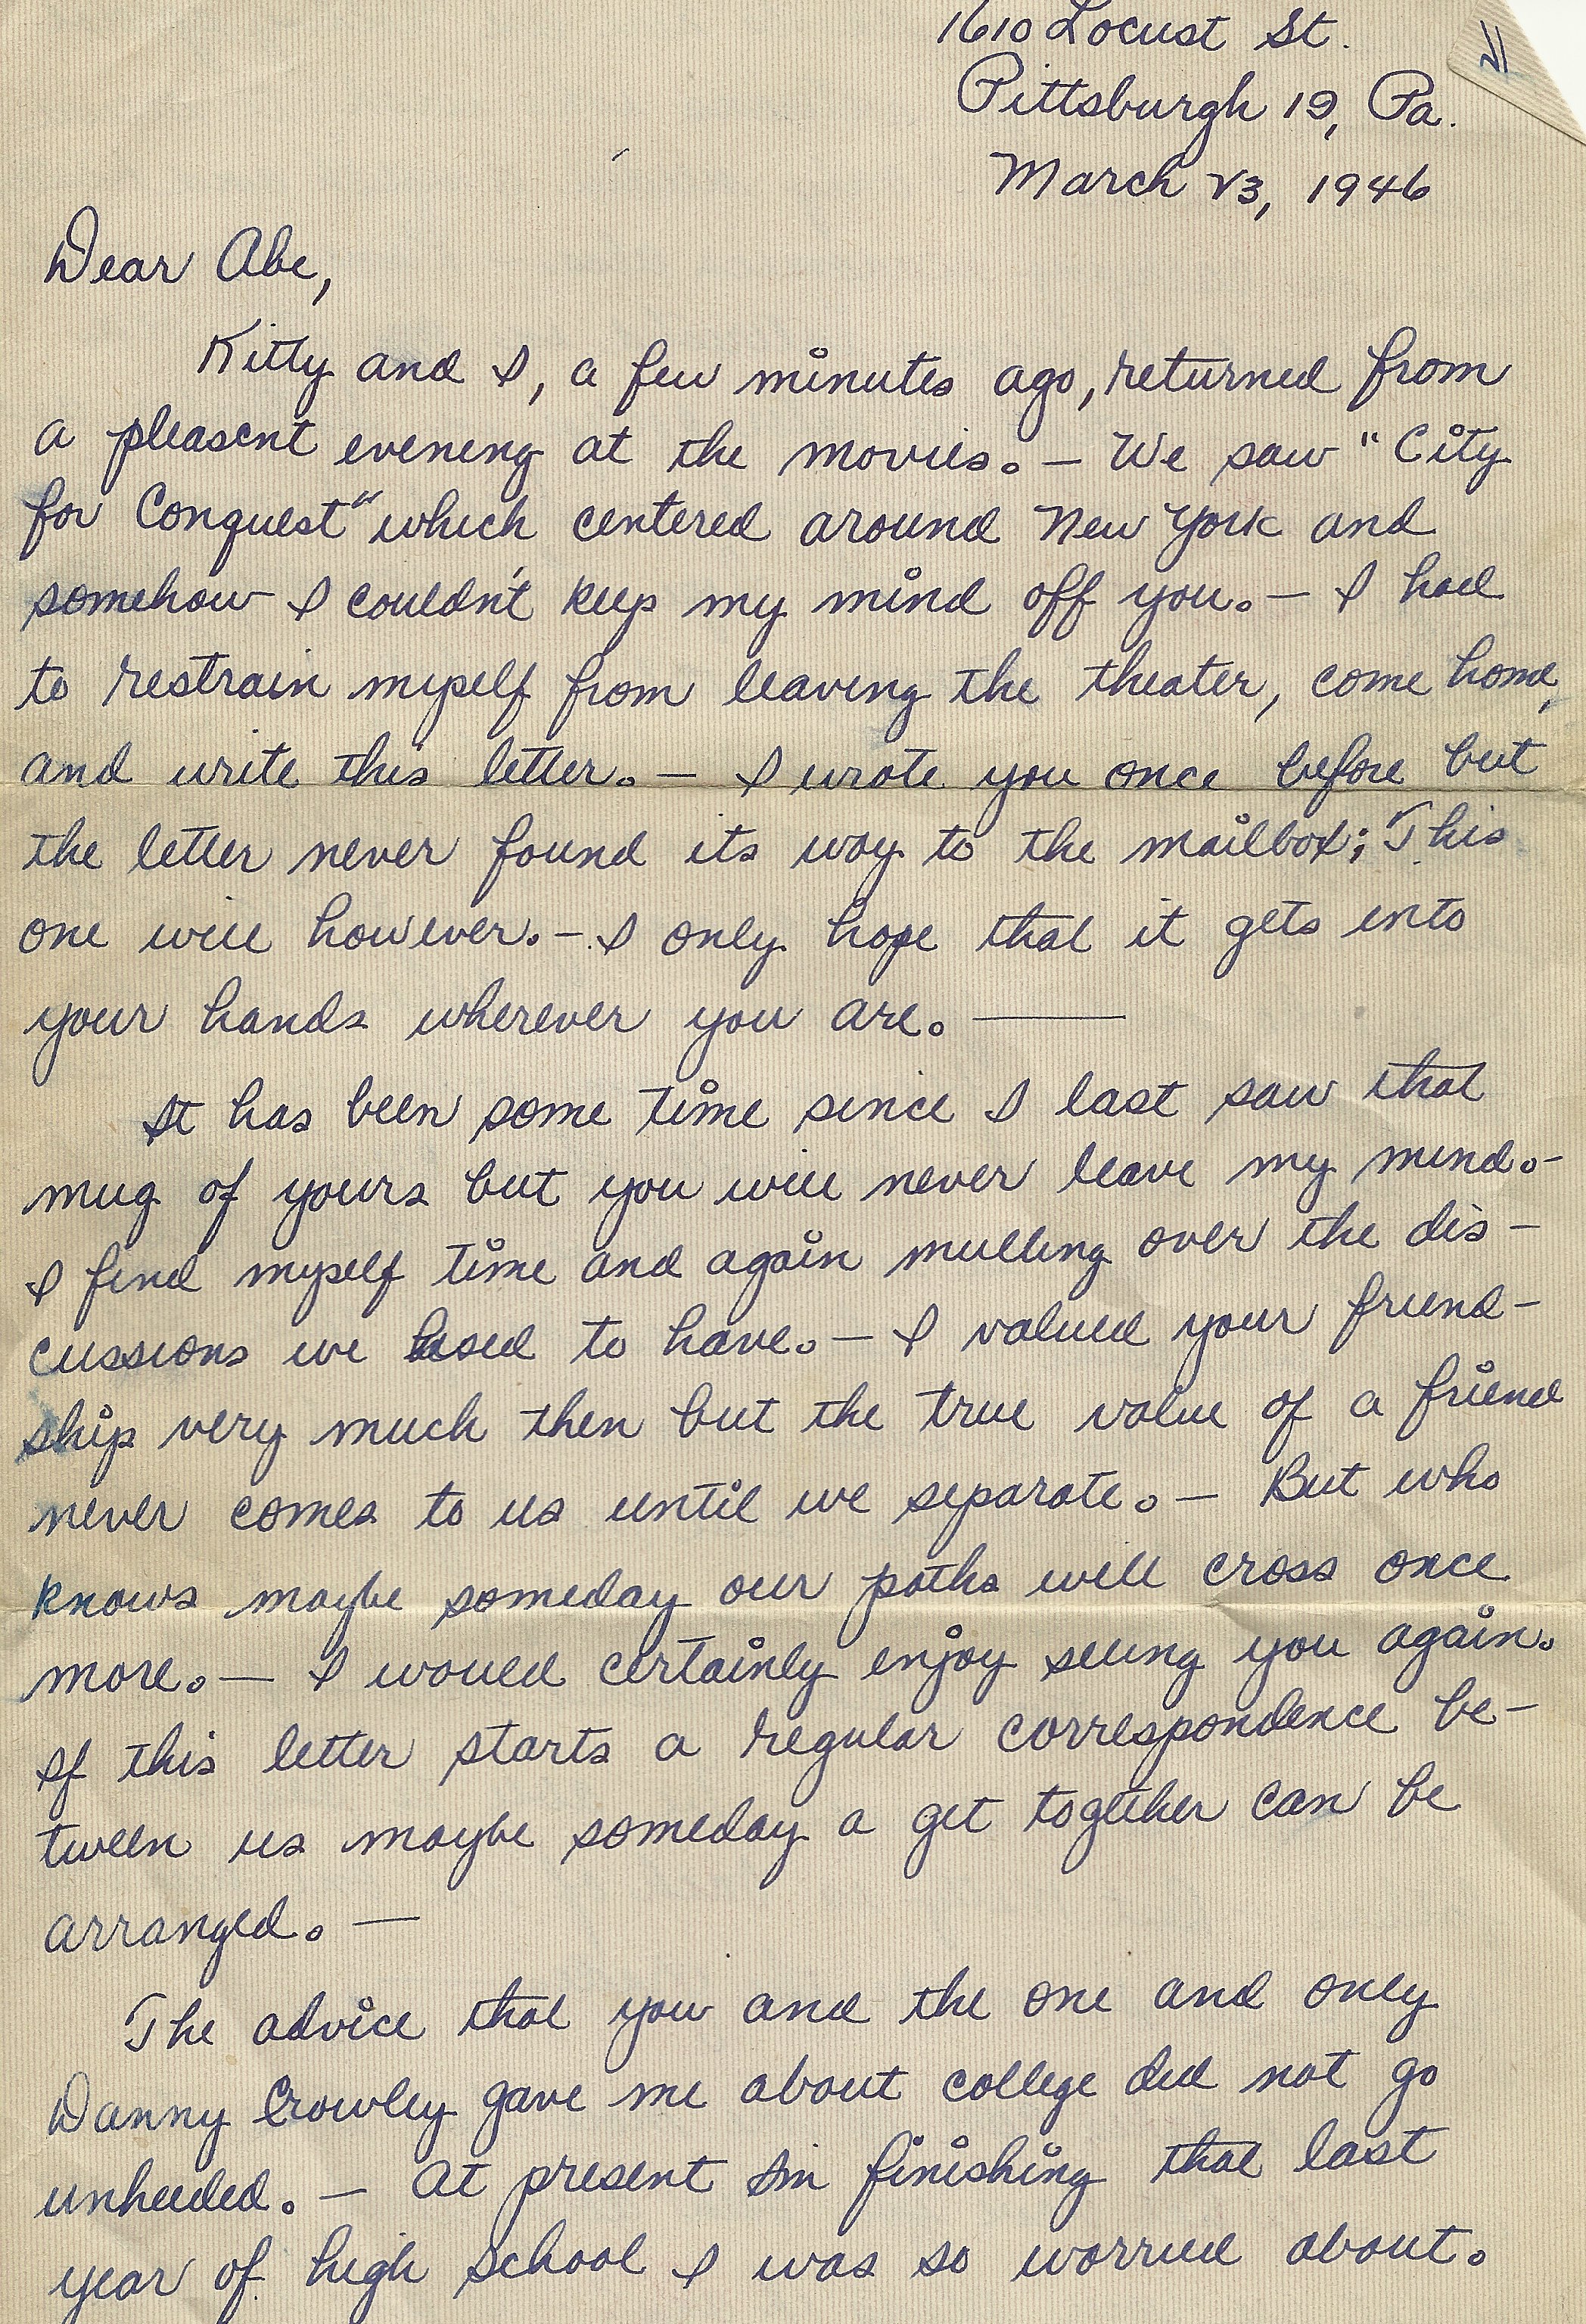 1610 Locust St.
Pittsburgh 19, Pa.
March 23, 1946
Dear Abe,
Kitty and I, a few minutes ago, returned from
a pleasent evening at the movies. — We saw "City
for Conquest" which centered around New York and
somehow I couldn't keep my mind off you. — I had
to restrain myself from leaving the theater, come home,
and write this letter. — I wrote you once before but
the letter never found its way to the mailbox; This
one will however. — I only hope that it gets into
your hands wherever you are. —
It has been some time since I last saw that
mug of yours but you will never leave my mind. —
I find myself time and again mulling over the dis-
cussions we used to have. — I valued your friend-
ship very much then but the true value of a friend
never comes to us until we separate. — But who
knows maybe someday our paths will cross once
more. — I would certainly enjoy seeing you again.
If this letter starts a regular correspondence be-
tween us maybe someday a get together can be
arranged. —
The advice that you and the one and only
Danny Crowley gave me about college did not go
unheeded. — At present I'm finishing that last
year of high school I was so worried about.